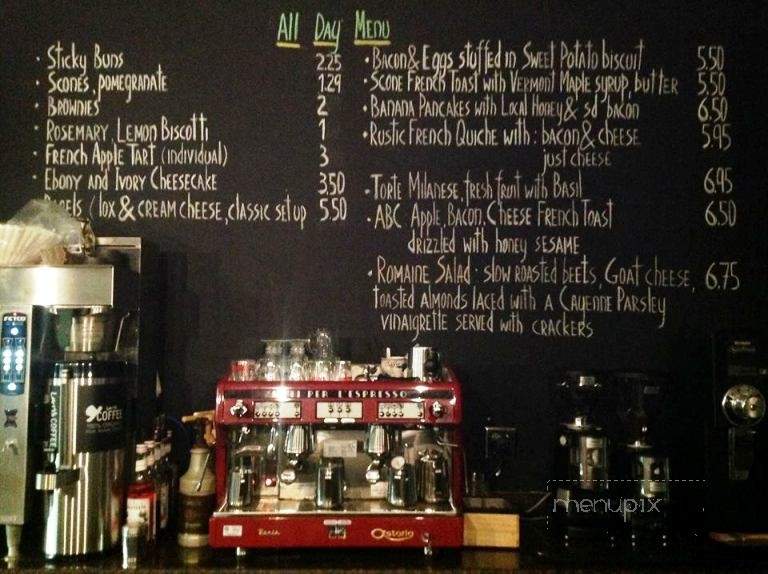 All Day Menu
· Sticky Buns 2.25
· Scones, pomegranate 1.29
· Brownies 2
· Rosemary, Lemon Biscotti 1
· French Apple Tart (individual) 3
· Ebony and Ivory Cheesecake 3.50
(lox & cream cheese, classic set up 5.50
· Bacon & Eggs stuffed in Sweet Potato biscuit 5.50
· Scone French Toast with Vermont Maple syrup, butter 5.50
· Banana Pancakes with Local Honey & sd bacon 6.50
· Rustic French Quiche with: bacon & cheese 5.95
just cheese
· Torte Milanese, fresh fruit with Basil 6.95
· ABC Apple, Bacon, Cheese French Toast 6.50
drizzled with honey sesame
· Romaine Salad · slow roasted beets, Goat cheese, 6.75
toasted almonds laced with a Cayenne Parsley
vinaigrette served with crackers
FETCO
COFFEE
PER L'ESPRESSO
Astoria
menupix